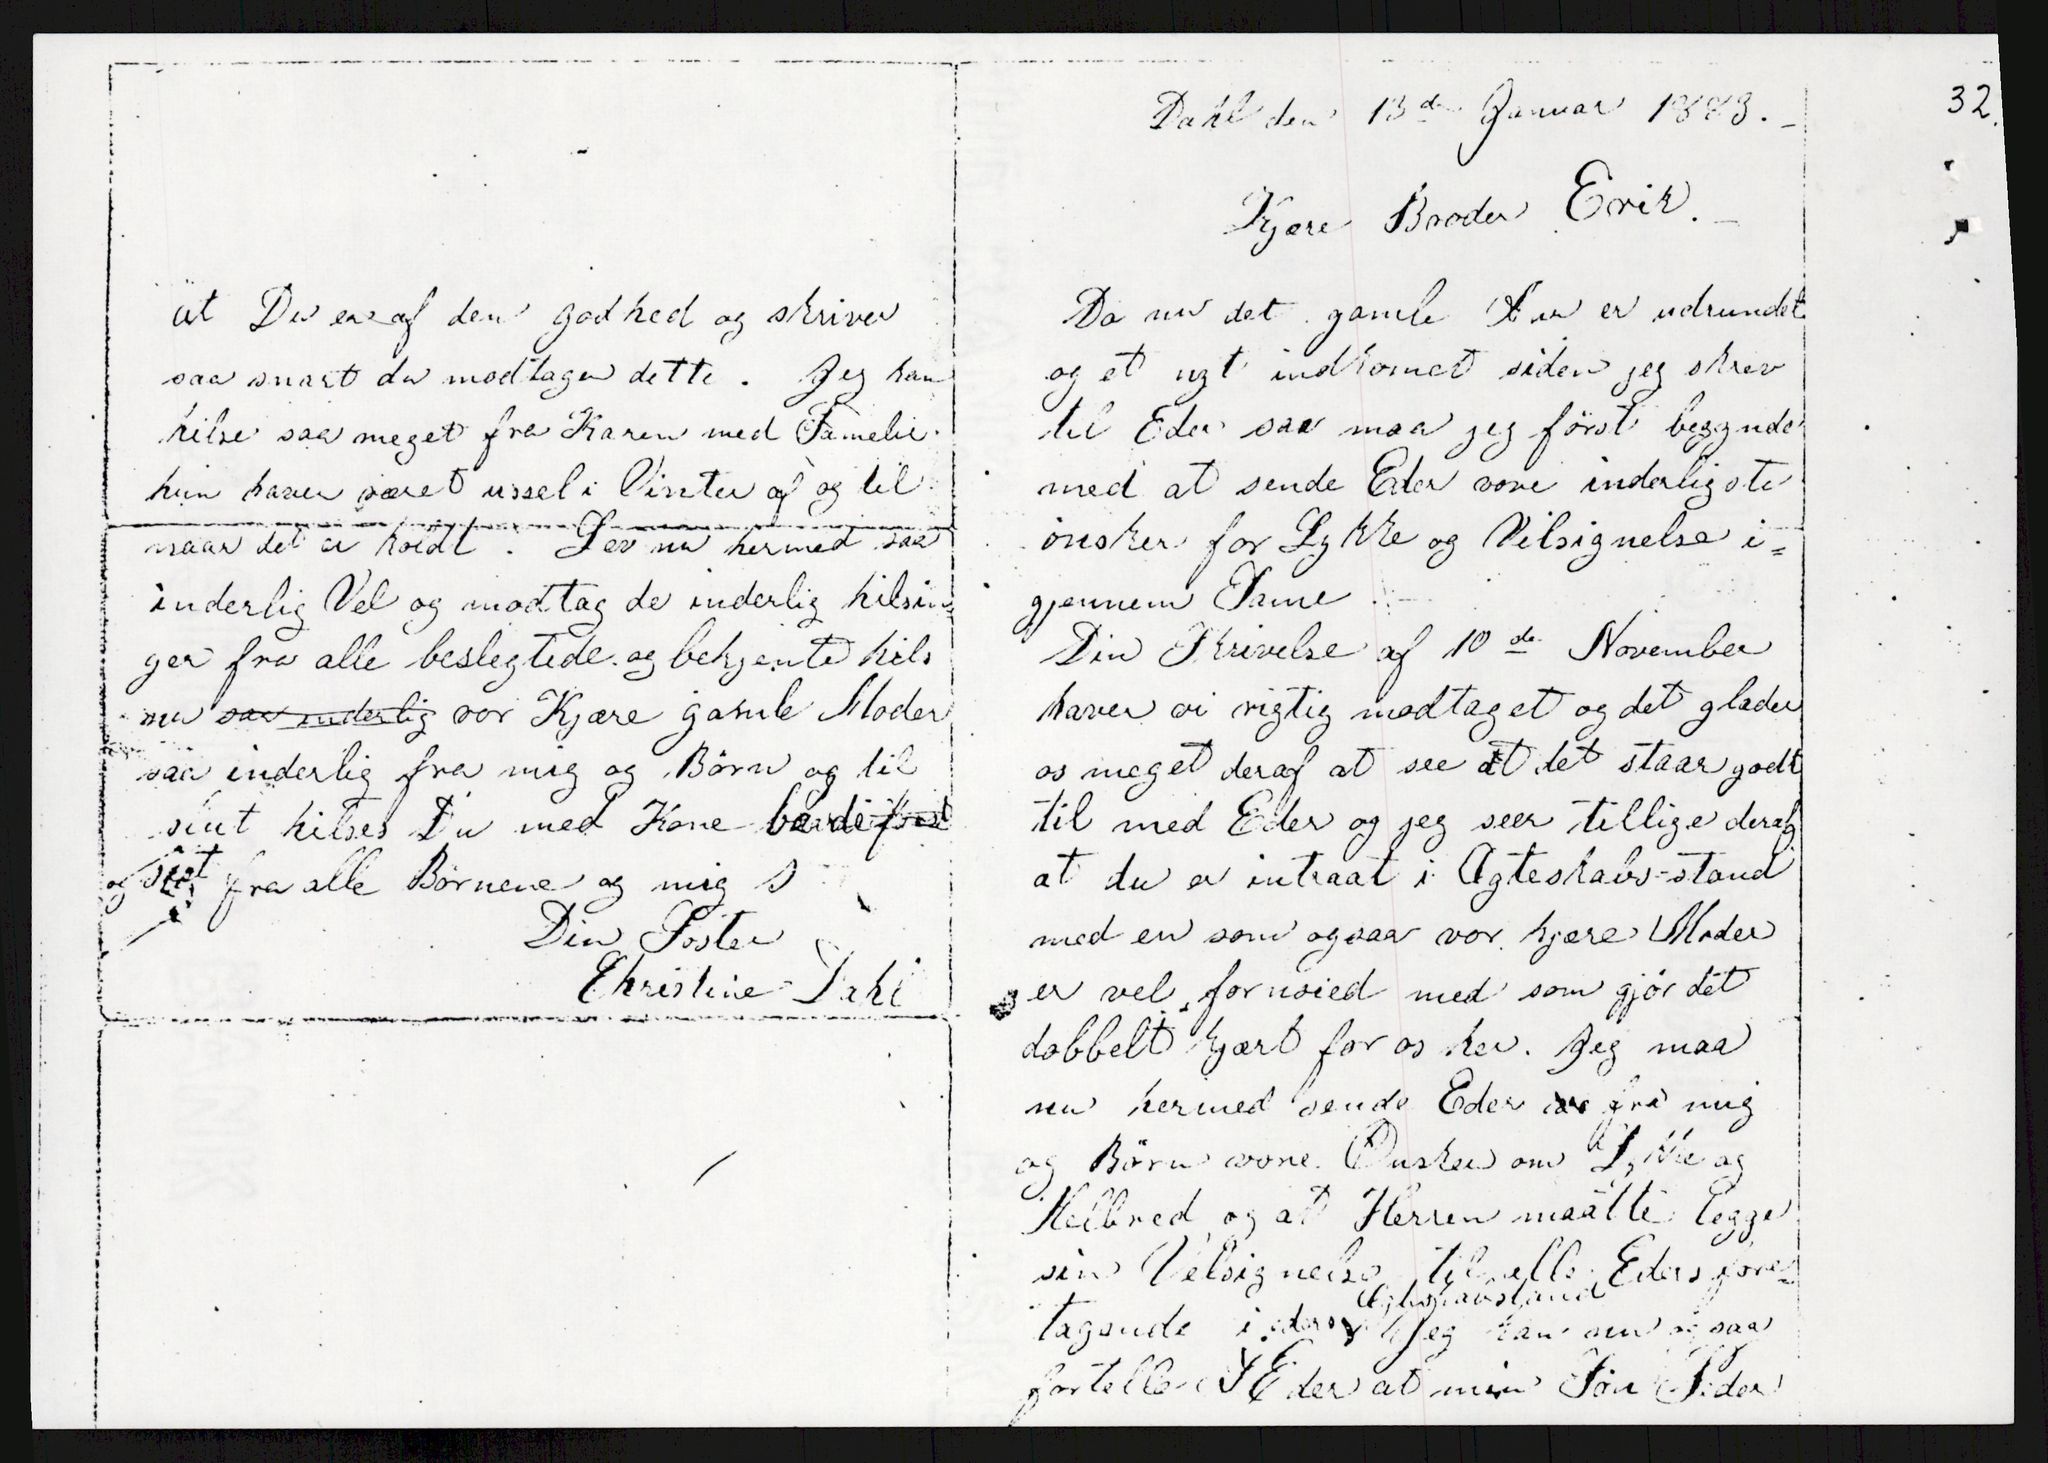 32.
Dahl den 13de Januar 1883.
Kjære Broder Erik.
Da nu det gamle Aar er udrundet
og et nyt indkomet siden jeg skrev
til Eder saa maa jeg först begynde
med at sende Eder vore inderligste
önsker for Lykke og Vilsignelse i=
gjennem Same
Din Skrivelse af 10de November
haver vi rigtig modtaget og det glæder
os meget deraf at see at det staar godt
til med Eder og jeg seer tillige deraf
at du er intraat i Ægteskabs-stand
med en som ogsaa vor kjære Moder
er vel fornöied med som gjör det
dobbelt kjært for os her. Jeg maa
nu hermed sende Eder fra mig
og Börn vore Önsker om Lykke og
Helbred og at Herren maatte legge
sin Velsignelse til alle Eders fore-
tagende i eders Ægteskavstand Jeg kan nu ogsaa
fortelle Eder at min Sön Peder
at Du er af den godhed og skriver
saa snart du modtager dette. Jeg kan
hilse saa meget fra Karen med Famelie
hun haver været ussel i Vinter af og til
naar det er koldt. Lev nu hermed saa
inderlig Vel og modtag de inderlig hilsin=
ger fra alle beslegtede og bekjente hils
nu saa inderlig vor Kjære gamle Moder
saa inderlig fra mig og Börn og til
sint hilses Du med Kone
og sist fra alle Börnene og mig
Din Söster
Christine Dahl